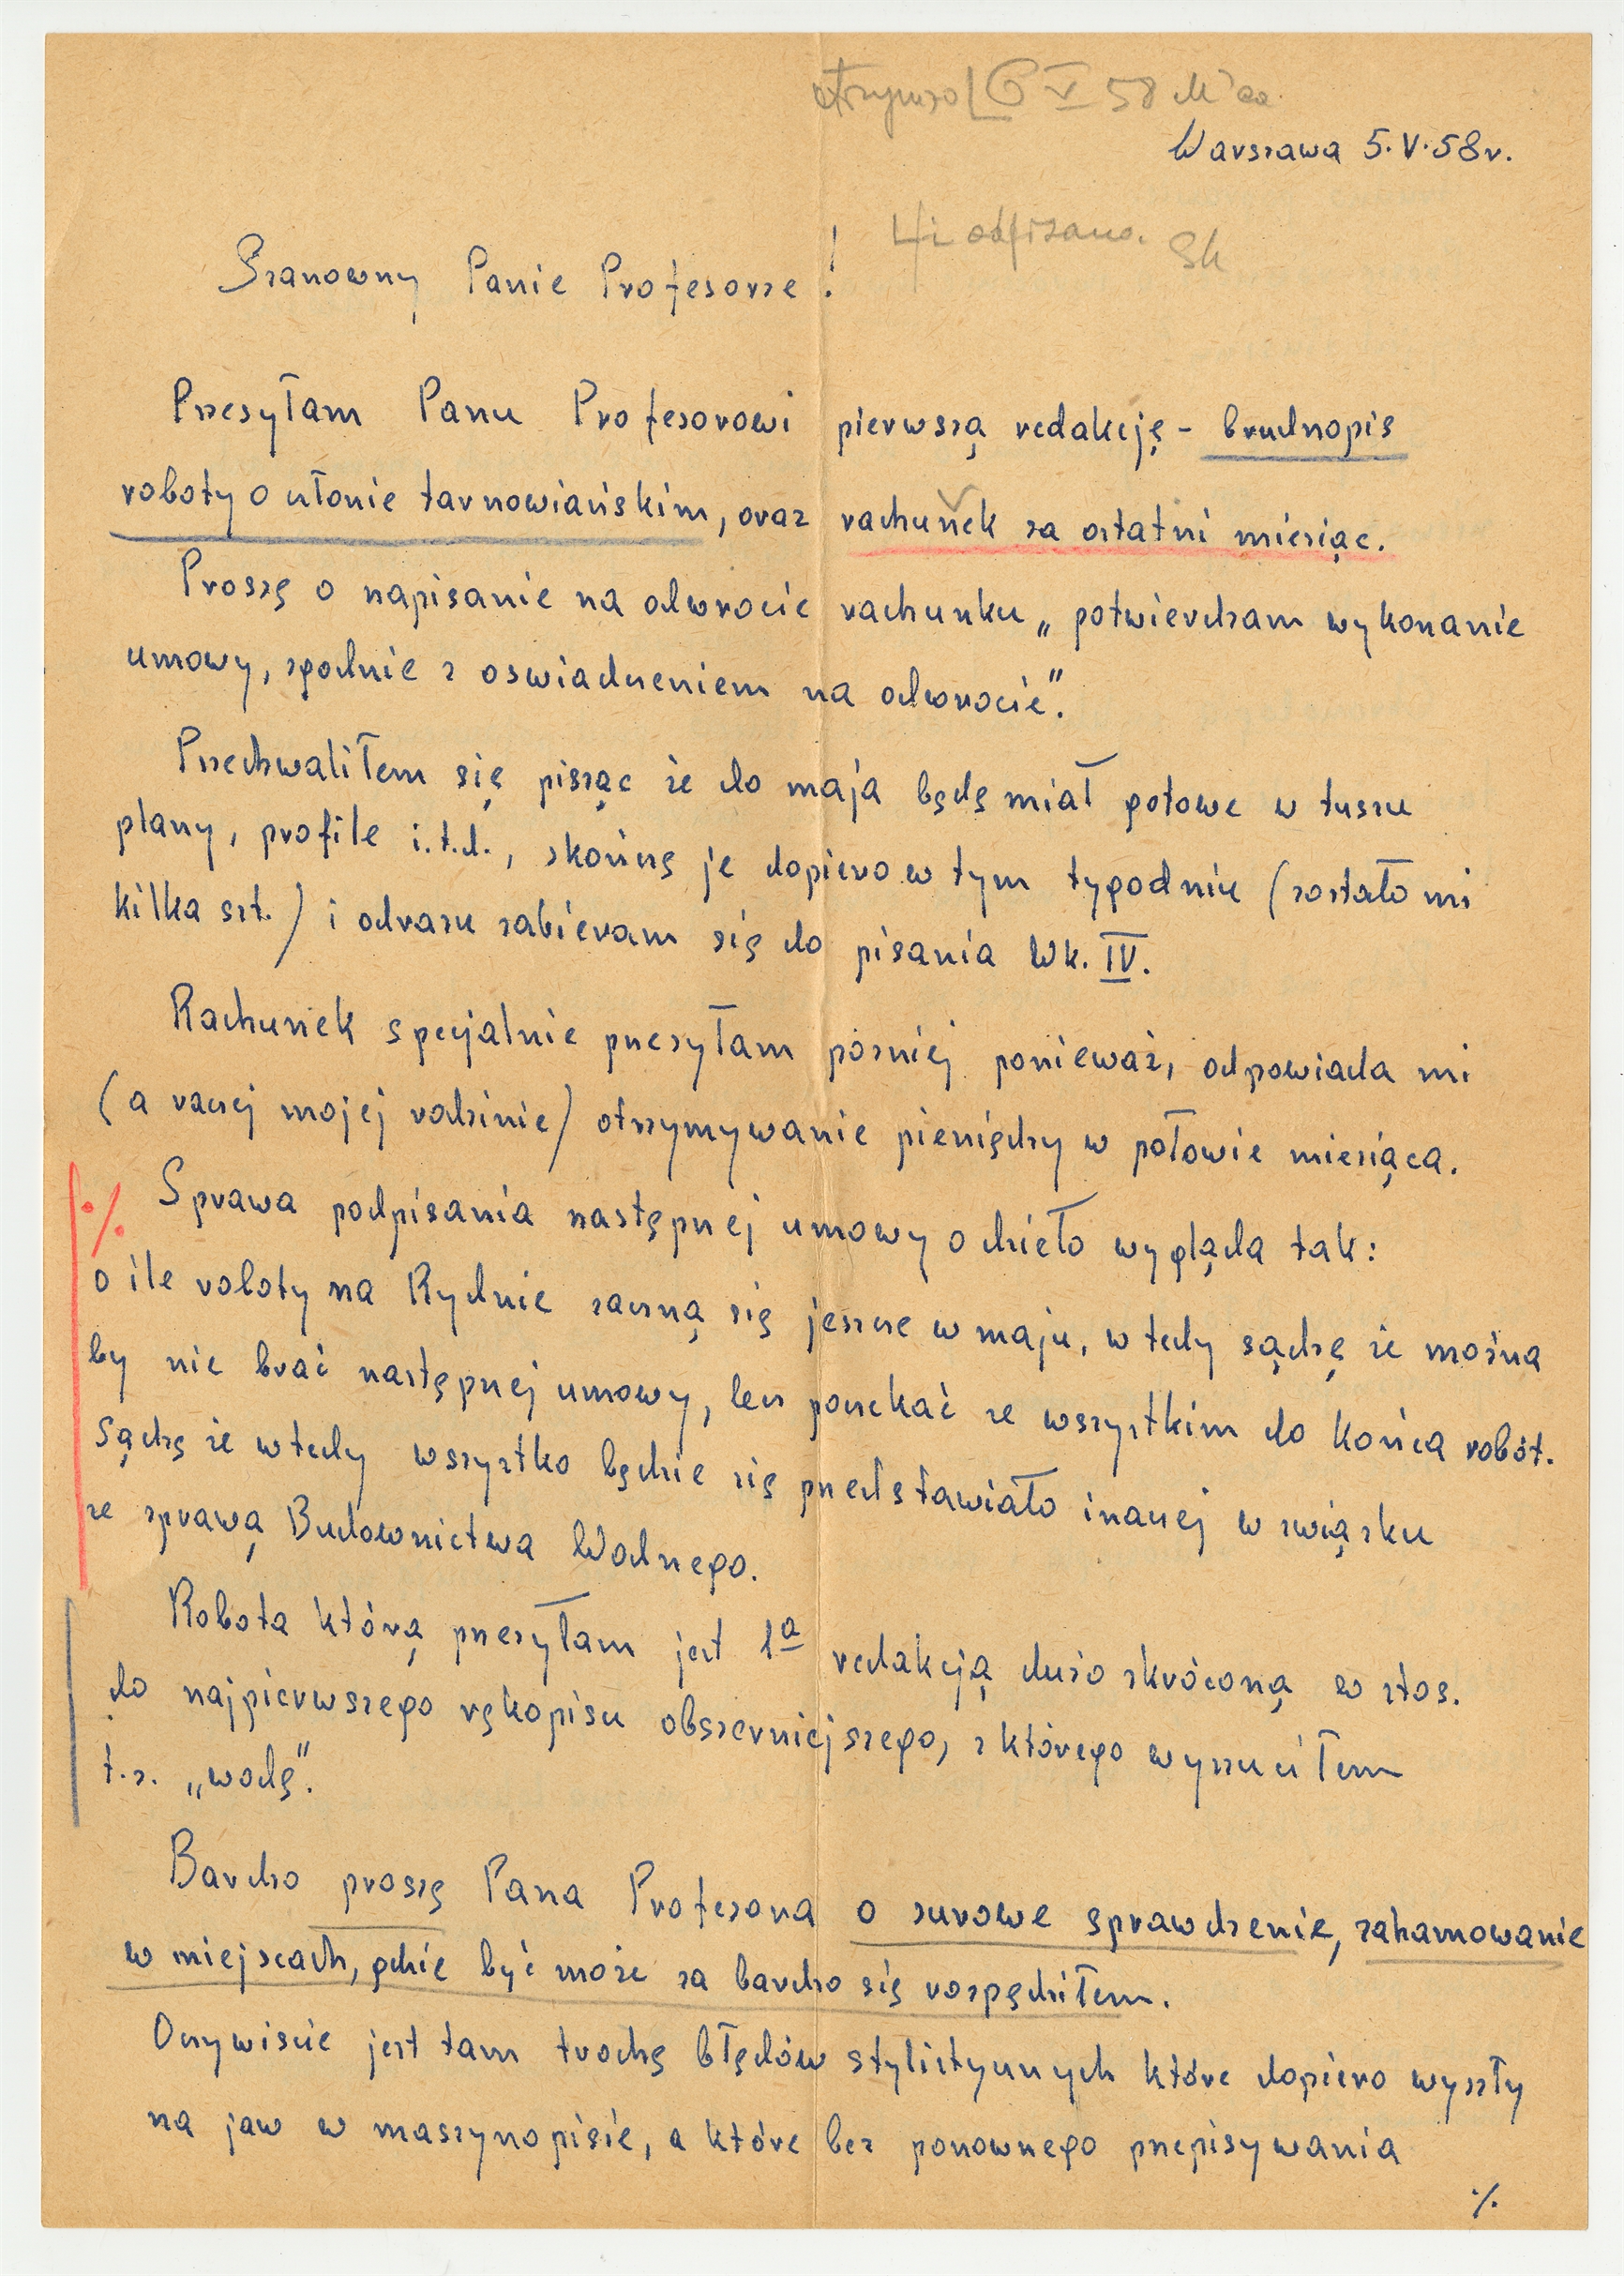 otrzymał 6 V 58
Warszawa 5.V.58r.
odpisano. Sk
Szanowny Panie Profesorze!
Przesyłam Panu Profesorowi pierwszą redakcję - brudnopis
roboty o cłonie tarnowiańskim, oraz rachunek za ostatni miesiąc.
Proszę o napisanie na odwrocie rachunku „potwierdzam wykonanie
umowy, zgodnie z oswiadczeniem na odwrocie”.
Przechwaliłem się pisząc że do maja będę miał gotowe w tuszu
plany, profile i.t.d., skończę je dopiero w tym tygodniu (zostało mi
kilka szt.) i odrazu zabieram się do pisania Wk. IV.
Rachunek specjalnie przesyłam pózniej ponieważ, odpowiada mi
(a raczej mojej rodzinie) otrzymywanie pieniędzy w połowie miesiąca.
./. Sprawa podpisania następnej umowy o dzieło wygląda tak:
o ile roboty na Rydnie zaczną się jeszcze w maju, wtedy sądzę że można
by nie brać następnej umowy, lecz poczekać ze wszystkim do końca robót.
Sądzę że wtedy wszystko będzie się przedstawiało inaczej w związku
ze sprawą Budownictwa Wodnego.
Robota którą przesyłam jest 1a redakcją dużo skróconą w stos.
do najpierwszego rękopisu obszerniejszego, z którego wyrzuciłem
t.z. „wodę”.
Bardzo proszę Pana Profesora o surowe sprawdzenie, zahamowanie
w miejscach, gdzie być może za bardzo się rozpędziłem.
Oczywiscie jest tam trochę błędów stylistycznych które dopiero wyszły
na jaw w maszynopisie, a które bez ponownego przepisywania
./.